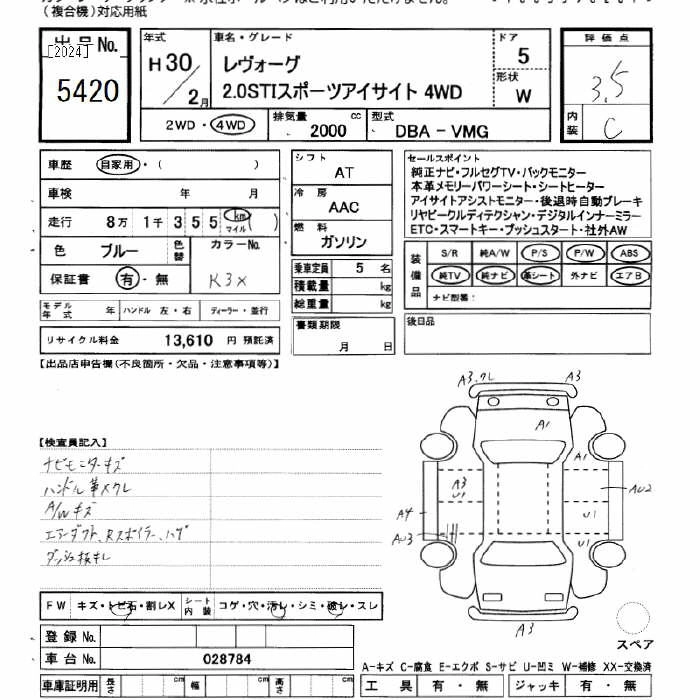 (複合機)対応用紙
出品No.
[2024]
5420
年式
H30/2月
車名・グレード
レヴォーグ
2.0STIスポーツアイサイト 4WD
ドア
5
形状
W
2WD・4WD
排気量
2000 cc
型式
DBA - VMG
評価点
3.5
内装
C
車歴 自家用・( )
車検 年 月
走行 8万 1千 3 5 5 km マイル ( )
色 ブルー 色替 カラーNo.
保証書 有・無 K3X
モデル年式 年 ハンドル 左・右 ディーラー・並行
リサイクル料金 13,610 円 預託済
シフト
AT
冷房
AAC
燃料
ガソリン
乗車定員 5 名
積載量 kg
総重量 kg
書類期限
月 日
セールスポイント
純正ナビ・フルセグTV・バックモニター
本革メモリーパワーシート・シートヒーター
アイサイトアシストモニター・後退時自動ブレーキ
リヤビークルディテクシャン・デジタルインナーミラー
ETC・スマートキー・プッシュスタート・社外AW
装備品
S/R 純A/W P/S P/W ABS
純TV 純ナビ 革シート 外ナビ エアB
ナビ型番:
後日品
【出品店申告欄(不良箇所・欠品・注意事項等)】
【検査員記入】
ナビモニターキズ
ハンドル革スクレ
A/Wキズ
エアーダクト、Rスポイラー、ハゲ
ダッシュ板キレ
A3.クレ A3
A1
A1
A3
U1
AU2
A4
U1
AU3
U1
A3
スペア
FW キズ・トビ石・割レX シート内装 コゲ・穴・汚レ・シミ・破レ・スレ
登録No.
車台No. 028784
A-キズ C-腐食 E-エクボ S-サビ U-凹ミ W-補修 XX-交換済
車庫証明用 長さ cm 幅 cm 高さ cm
工具 有・無 ジャッキ 有・無